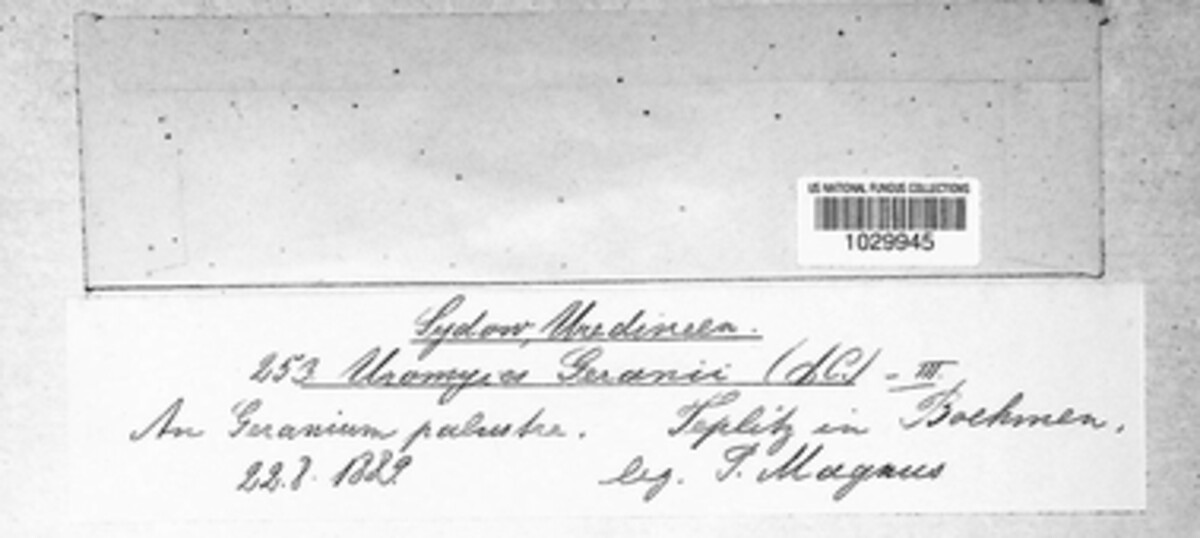 US NATIONAL FUNGUS COLLECTIONS
1029945
Sydow, Uredineen.
253 Uromyces Geranii (DC.) - III.
An Geranium palustre. Teplitz in Boehmen.
22.8. 1889. leg. P. Magnus